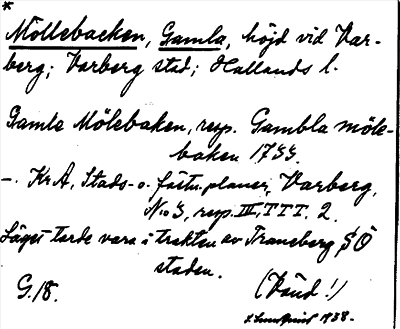 *
Möllebacken, Gamla, höjd vid Var-
berg; Varberg stad; Hallands l.
Gamle Mölebaken, resp. Gambla möle-
baken 1733.
-. KrA, Stads- o. fästn.planer, Varberg,
N:o 3, resp. III, TTT. 2.
Läget torde vara i trakten av Traneberg SÖ
staden.
G.18. (Känd!)
1938.